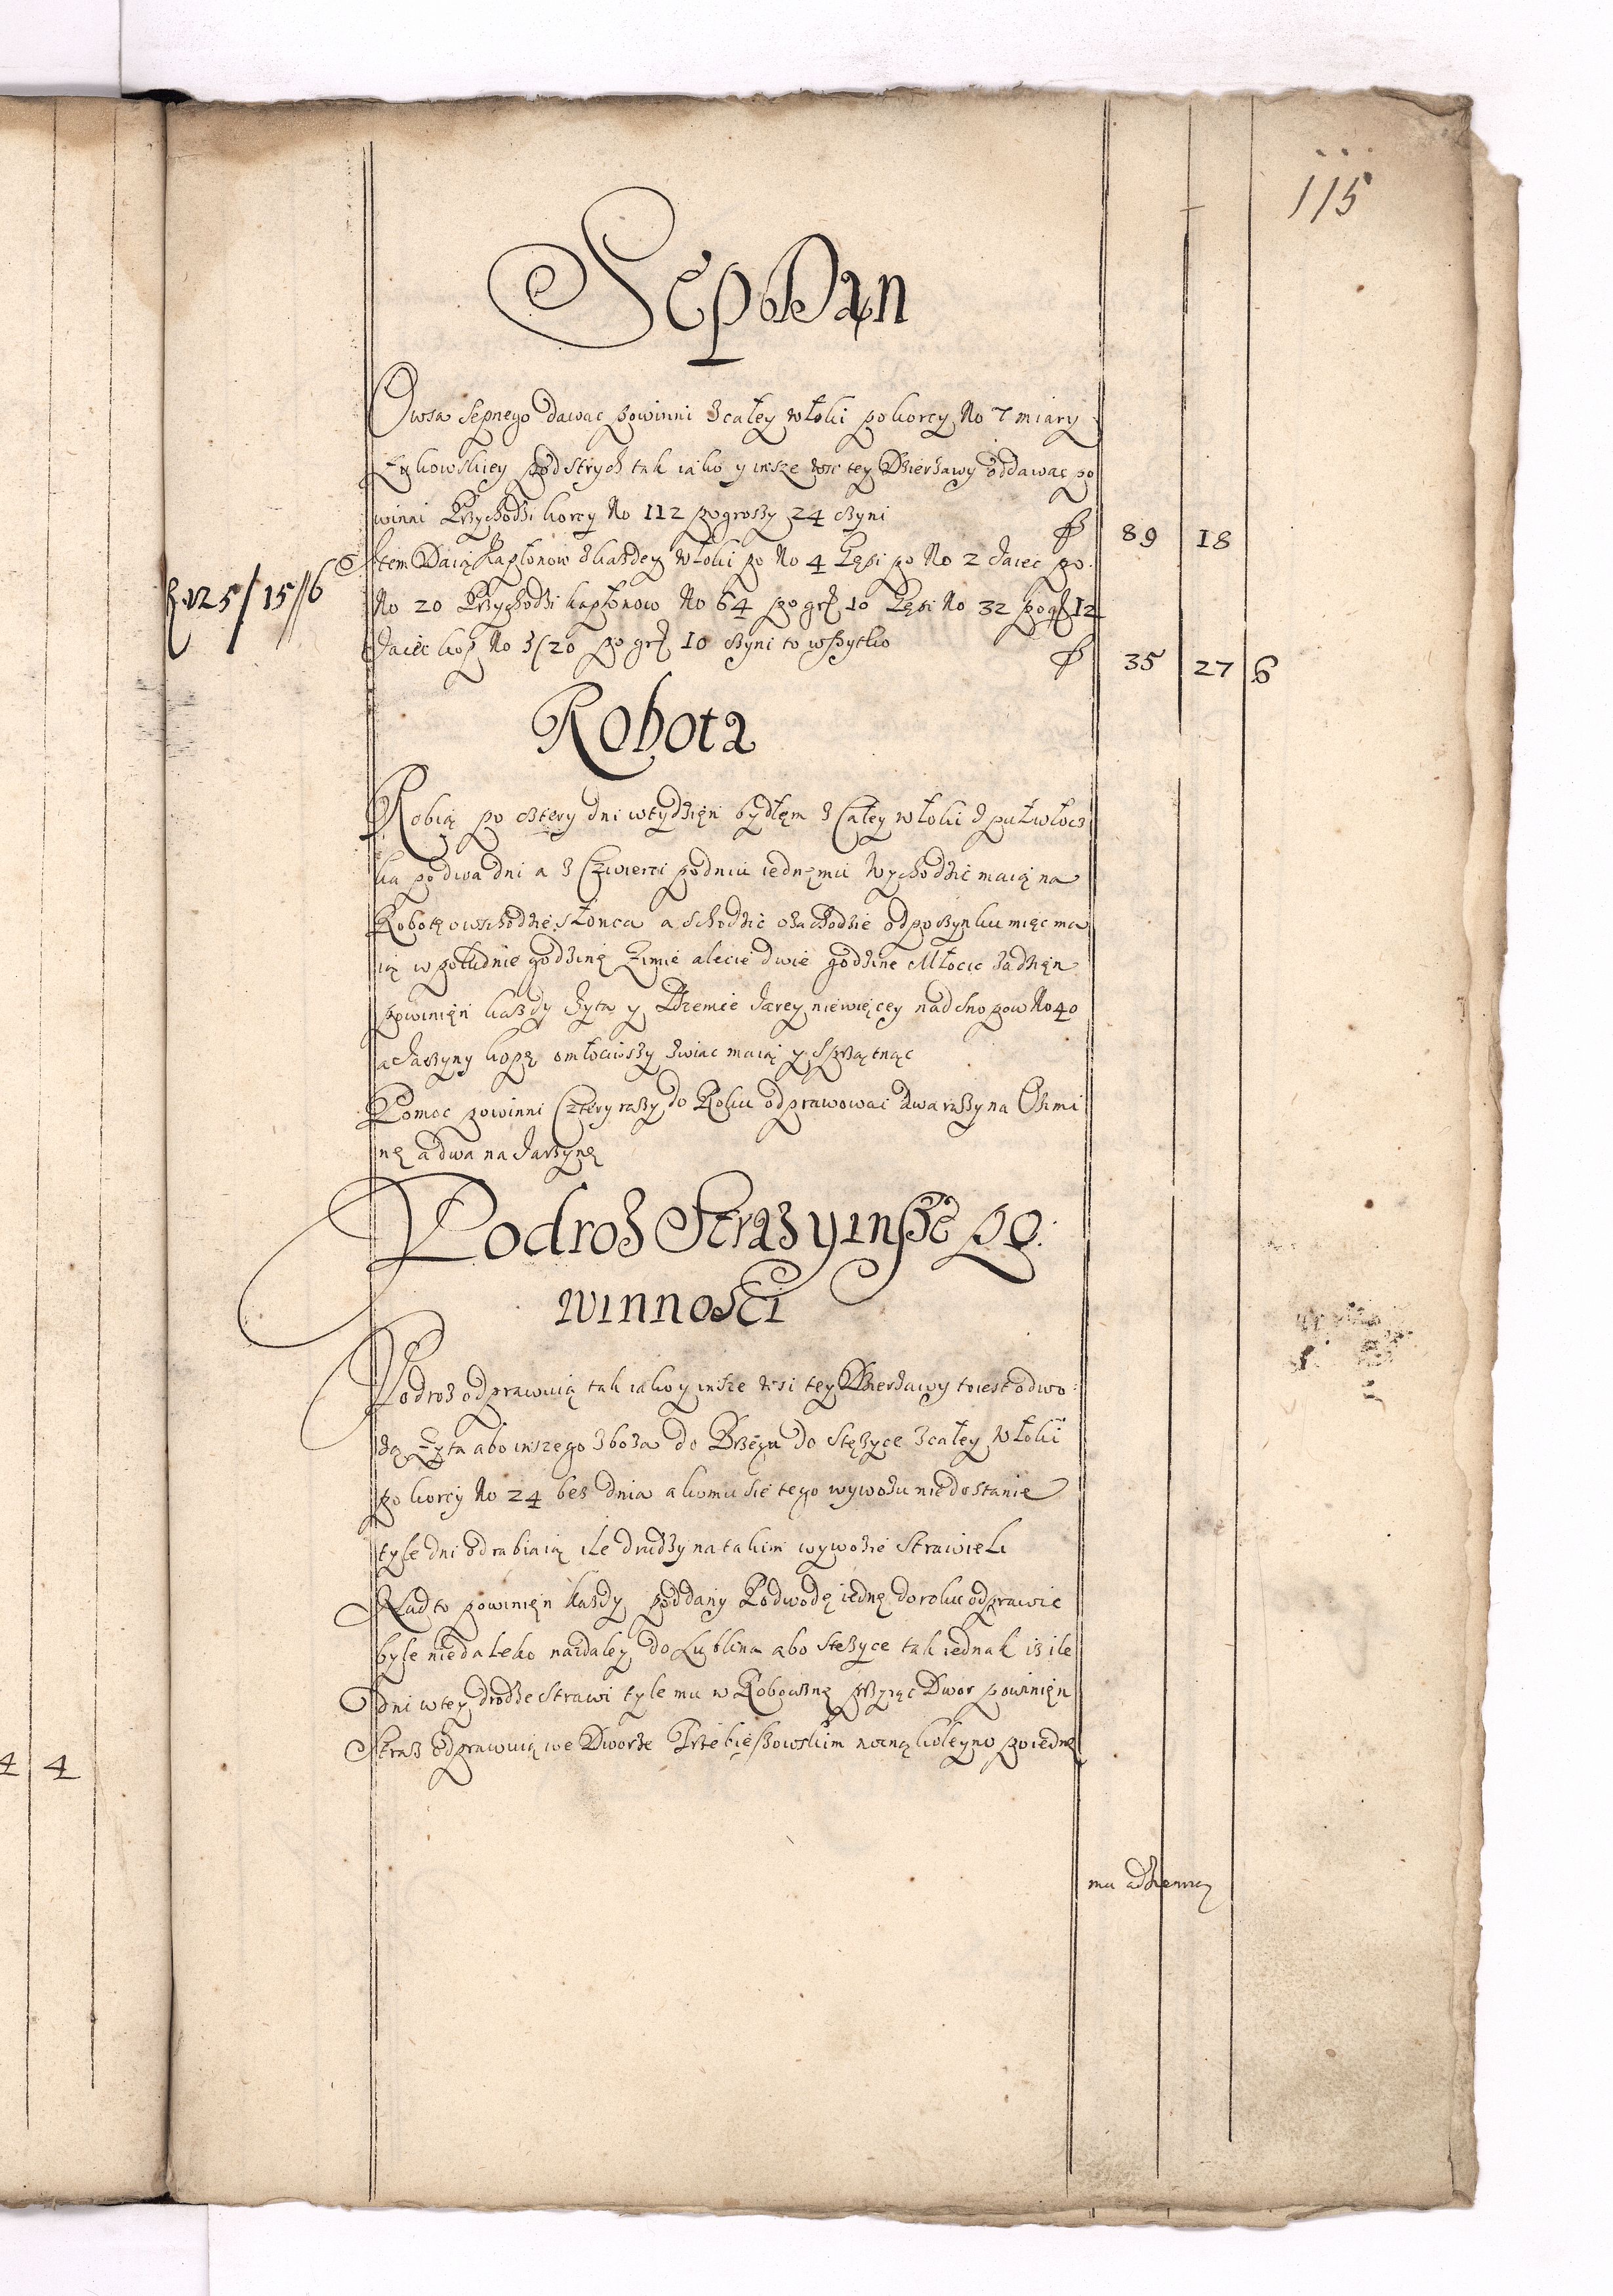 115
Sep Dan
Owsa sepnego dawac powinni z całey włoki po korcy No 7 miary
Łukowskiey pod strych tak iako y insze wsi tey Dzierżawy oddawac po
winni Przychodzi korcy No 112 po groszy 24 czyni f 89 18
Item Daią kapłonow z każdey włoki po No 4 Gęsi po No 2 Jaiec po
f 125/15//6
No 20 Przychodzi kapłonow No 64 po grz 10 Gęsi No 32 po grz 12
Jaiec kop No 5/20 po grz 10 czyni to wszytko f 35 27 6
Robota
Robią po cztery dni w tydzięn bydłęm z Całey włoki z puł włocz
ka po dwa dni a z Czwierci po dniu iednęmu Wychodzic maią na
Robotę o wschodzie słonca a schodzic o zachodzie odpoczynku miec ma
ią w południe godzinę Zimie a lecie dwie godzine Młocic za dzięn
powinięn każdy Zyta y Pszenice Jarey niewięcey nad snopow No 40
a Jarzyny kopę omłociwszy zwiac maią y sprzątnąc
Pomoc powinni Cztery razy do Roku odprawowac dwa razy na Ozimi
nę a dwa na Jarzynę
Podroz Straz y insze po
winnosci
Podroz odprawuią tak iako y insze wsi tey Dzierżawy to iest odwo
żą Zyta abo inszego zboza do Brzegu do Stężyce z całey Włoki
po korcy No 24 bez dnia a komu się tego wywozu nie dostanie
tyle dni odrabiaią ile drudzy na takim wywozie strawieli
Nadto powinięn każdy poddany Podwodę iednę do roku odprawic
byle niedaleko nazdaley do Lublina abo Stężyce tak iednak iż ile
dni w tey drodze strawi tyle mu w Roboczne przyiąc Dwor powinięn
Straz odprawuią we Dworze Trzebieszowskim nocną koleyno po iednę
mu adziennej
4 4